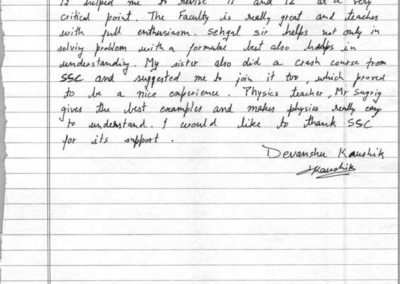 It helped me to revise 11 and 12 at a very
critical point. The Faculty is really great and teaches
with full enthusiasm. Sehgal sir helps not only in
solving problem with a formulae but also helps in
understanding. My sister also did a crash course from
SSC and suggested me to join it two, which proved
to be a nice experience. Physics teacher, Mr
gives the best examples and makes physics really easy
to understand. I would like to thank SSC
for its support.
Devanshu Kaushik
Kaushik